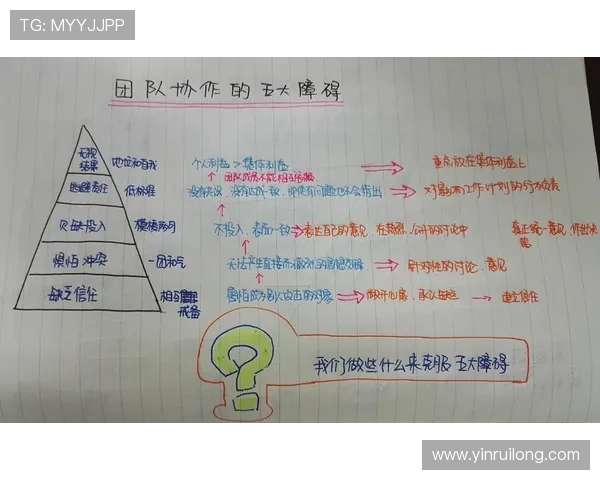 TG: MYYJJPP
团队协作的五大障碍
无视结果 地位和自我 个人利益 > 集体利益 重点放在集体利益上
逃避责任 低标准 没有共识、没有达成一致，即使有问题也不会指出 对影响工作计划的行为负责
欠缺投入 模棱两可 不投入，表面一致 表达自己的意见，在激烈、公开的讨论中 真正统一意见，作出决策
惧怕冲突 一团和气 无法产生直接而激烈的思想交锋 针对性的讨论、意见
缺乏信任 相互戒备 害怕成为别人攻击的对象 敞开心扉，承认缺陷 建立信任
我们做些什么来克服五大障碍
www.yinruilong.com